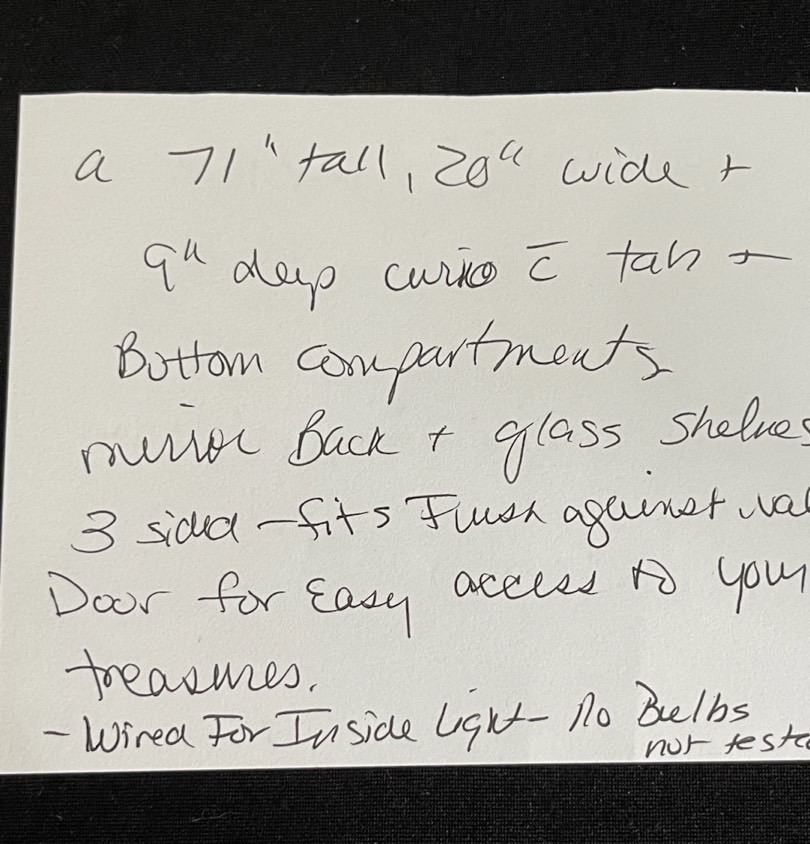 a 71" tall, 20" wide +
9" deep curio c̄ tah +
Bottom compartments
mirror Back + glass shelves
3 sided - fits Flush against wal
Door for Easy access to your
treasures.
- Wired For Inside Light - No Bulbs
not teste